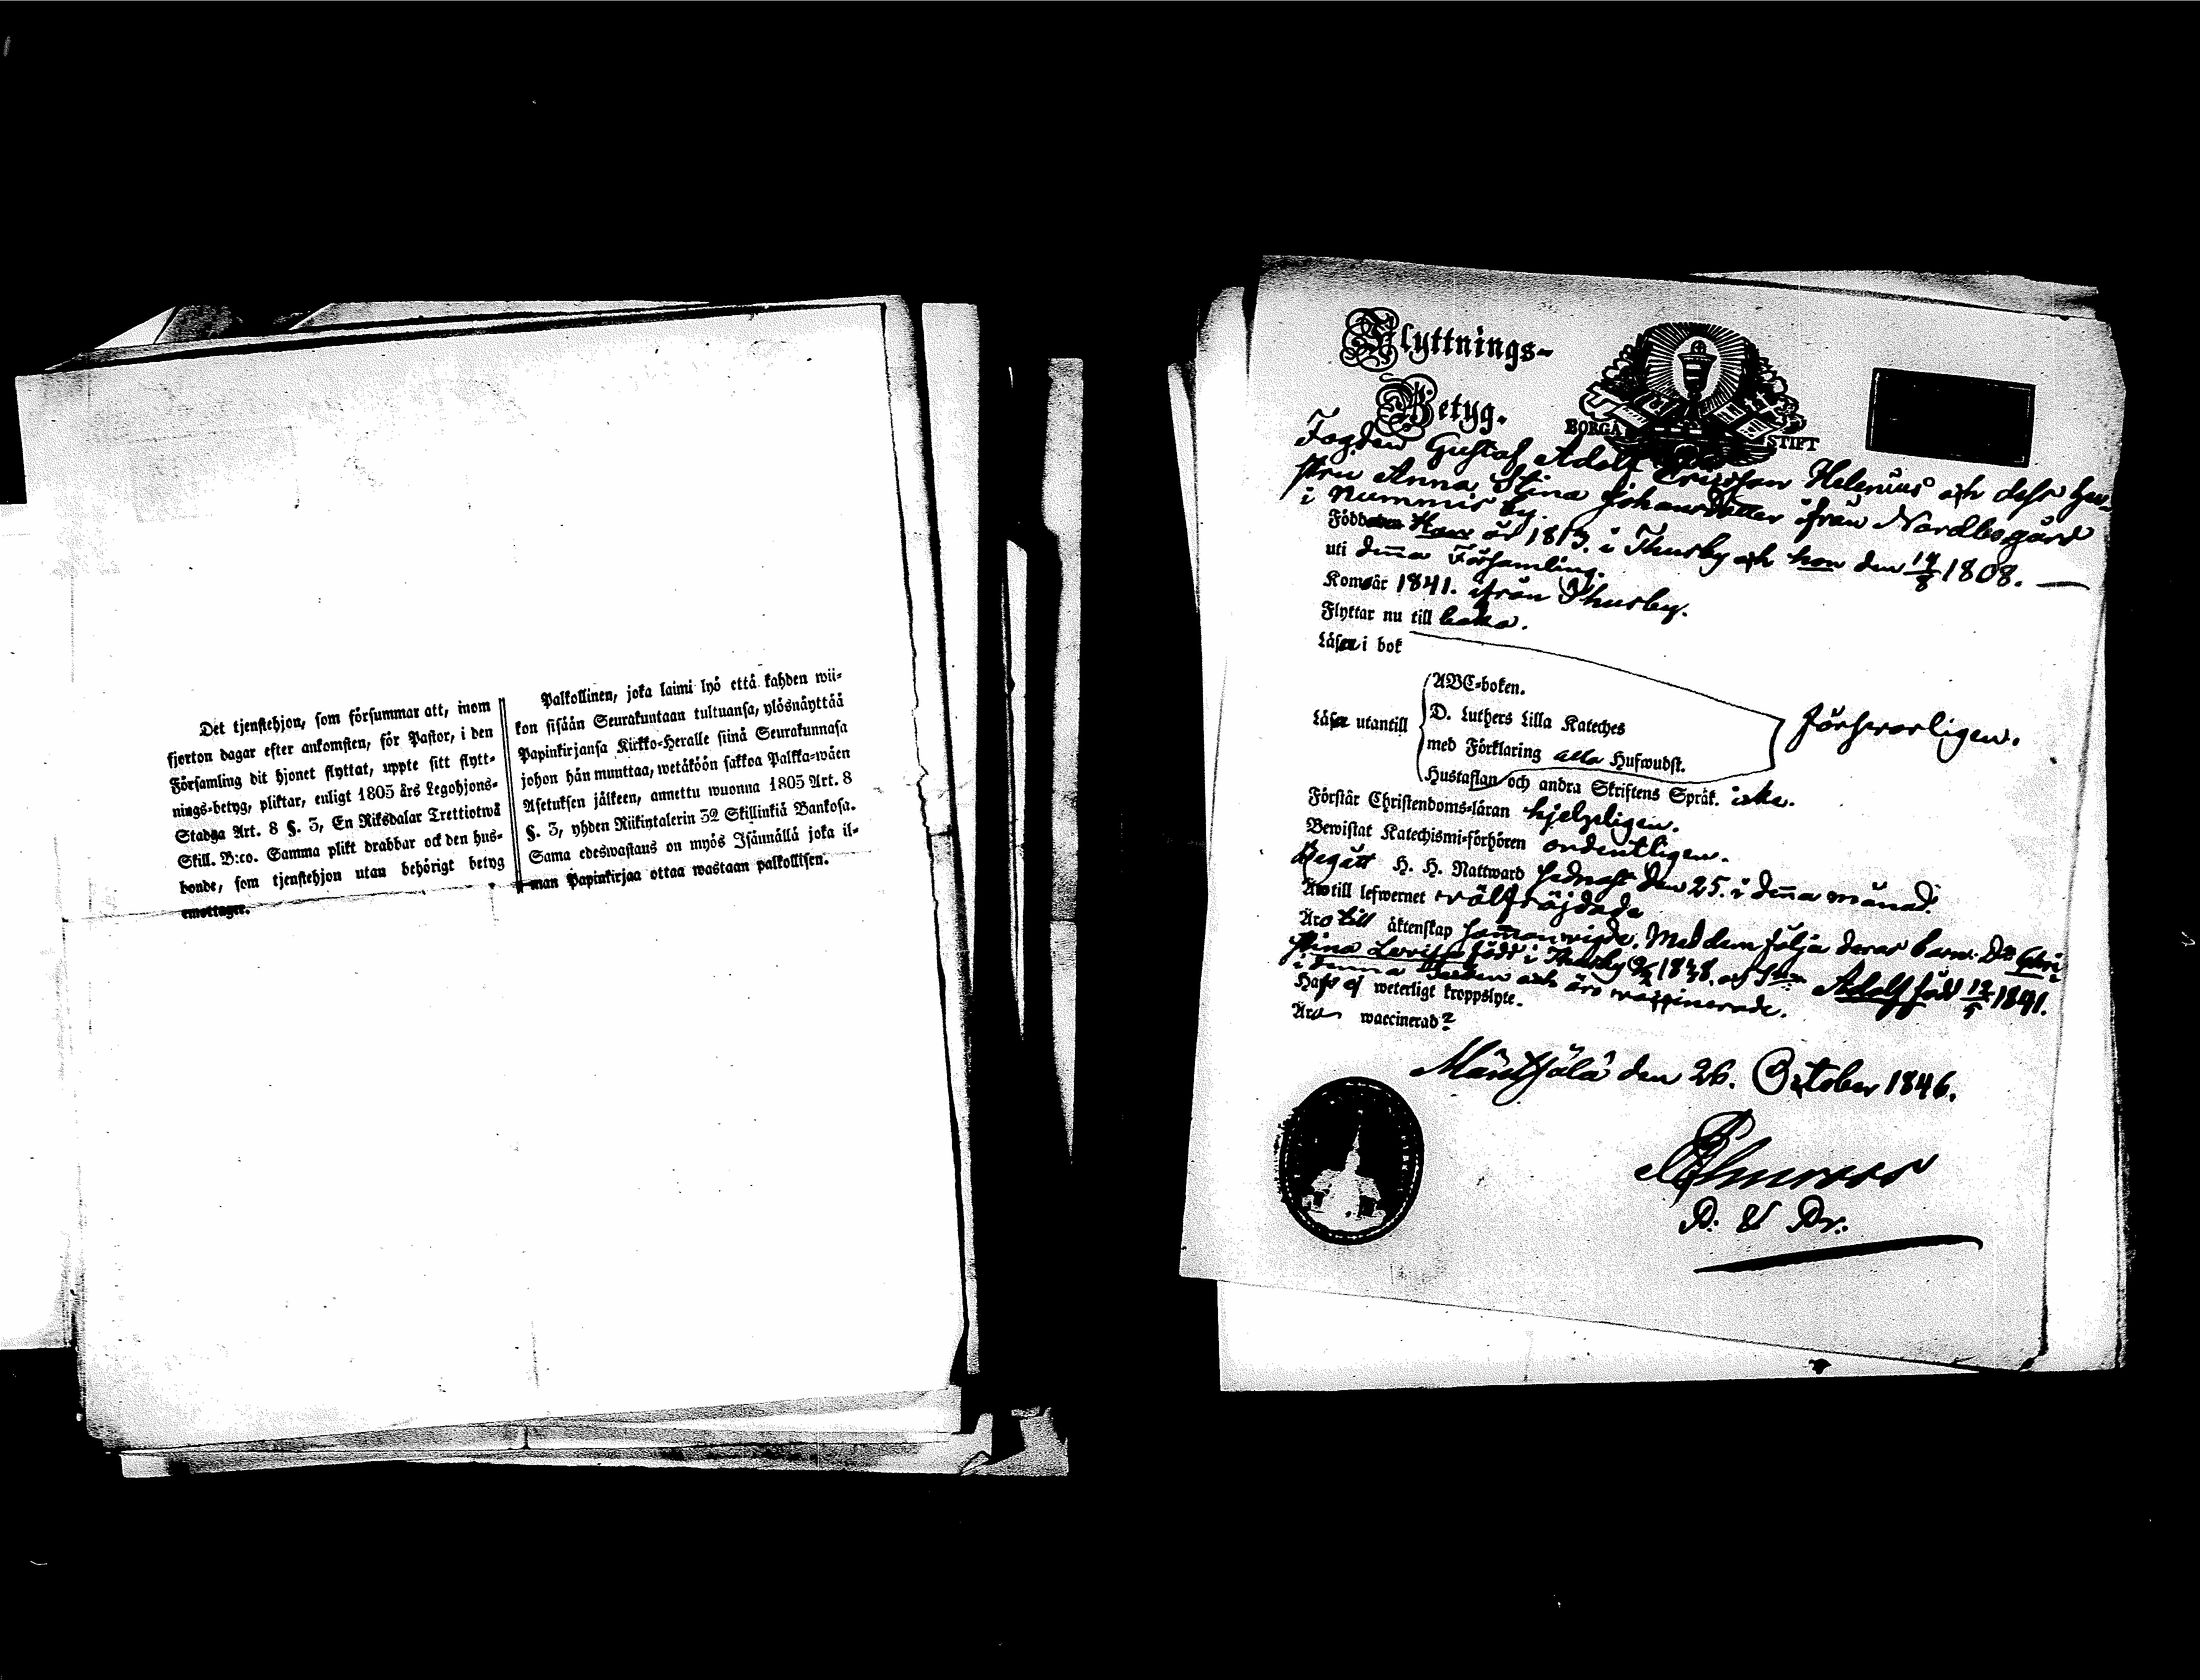 Det tjenstehjon, som försummar att, inom
fjorton dagar efter ankomsten, för Pastor, i den
Församling dit hjonet flyttat, uppte sitt flytt-
nings-betyg, pliktar, enligt 1805 års Legohjons-
Stadga Art. 8 §. 3, En Riksdalar Trettiotwå
Skill. B:co. Samma plikt drabbar ock den hus-
bonde, som tjenstehjon utan behörigt betyg
emottager.
Palkollinen, joka laimi lyö että kahden wii-
kon sisään Seurakuntaan tultuansa, ylösnäyttää
Papinkirjansa Kirkko-Heralle siinä Seurakunnasa
johon hän muuttaa, wetäköön sakkoa Palkka-wäen
Asetuksen jälkeen, annettu wuonna 1805 Art. 8
§. 3, yhden Riikintalerin 32 Skillinkiä Bankosa.
Sama edeswastaus on myös Isännällä joka il-
man Papinkirjaa ottaa wastaan palkollisen.
Flyttnings-
Betyg.
BORGÅ STIFT
Fogden Gustaf Adolf Ericsson Helenius och dess hu-
stru Anna Stina Johansdotter ifrån Nordbsgård
i Nummis by.
Född Han år 1813. i Thusby och hon den 19/8 1808. —
uti denna Församling.
Kom år 1841. ifrån Thusby.
Flyttar nu till baka.
Läser i bok
ABC-boken.
Läser utantill D. Luthers Lilla Kateches
med Förklaring alla Hufwudst.
Försvarligen.
Hustaflan och andra Skriftens Språk. icke.
Förstår Christendoms-läran hjelpligen.
Bewistat Katechismi-förhören ordentligen.
Begått H. H. Nattward sednast den 25. i denna månad.
Äro till lefwernet välfräjdade
Äro till äktenskap sammanvigde. Med dem följa deras barn: Dr Chri-
stina Lovisa född i Thusby 1838. och Son Adolf född 12/5 1841.
i denna och äro vaccinerade.
Hafva ej weterligt kroppslyte.
Äro waccinerad?
Mäntsälä den 26. October 1846.
P. V. Pr.